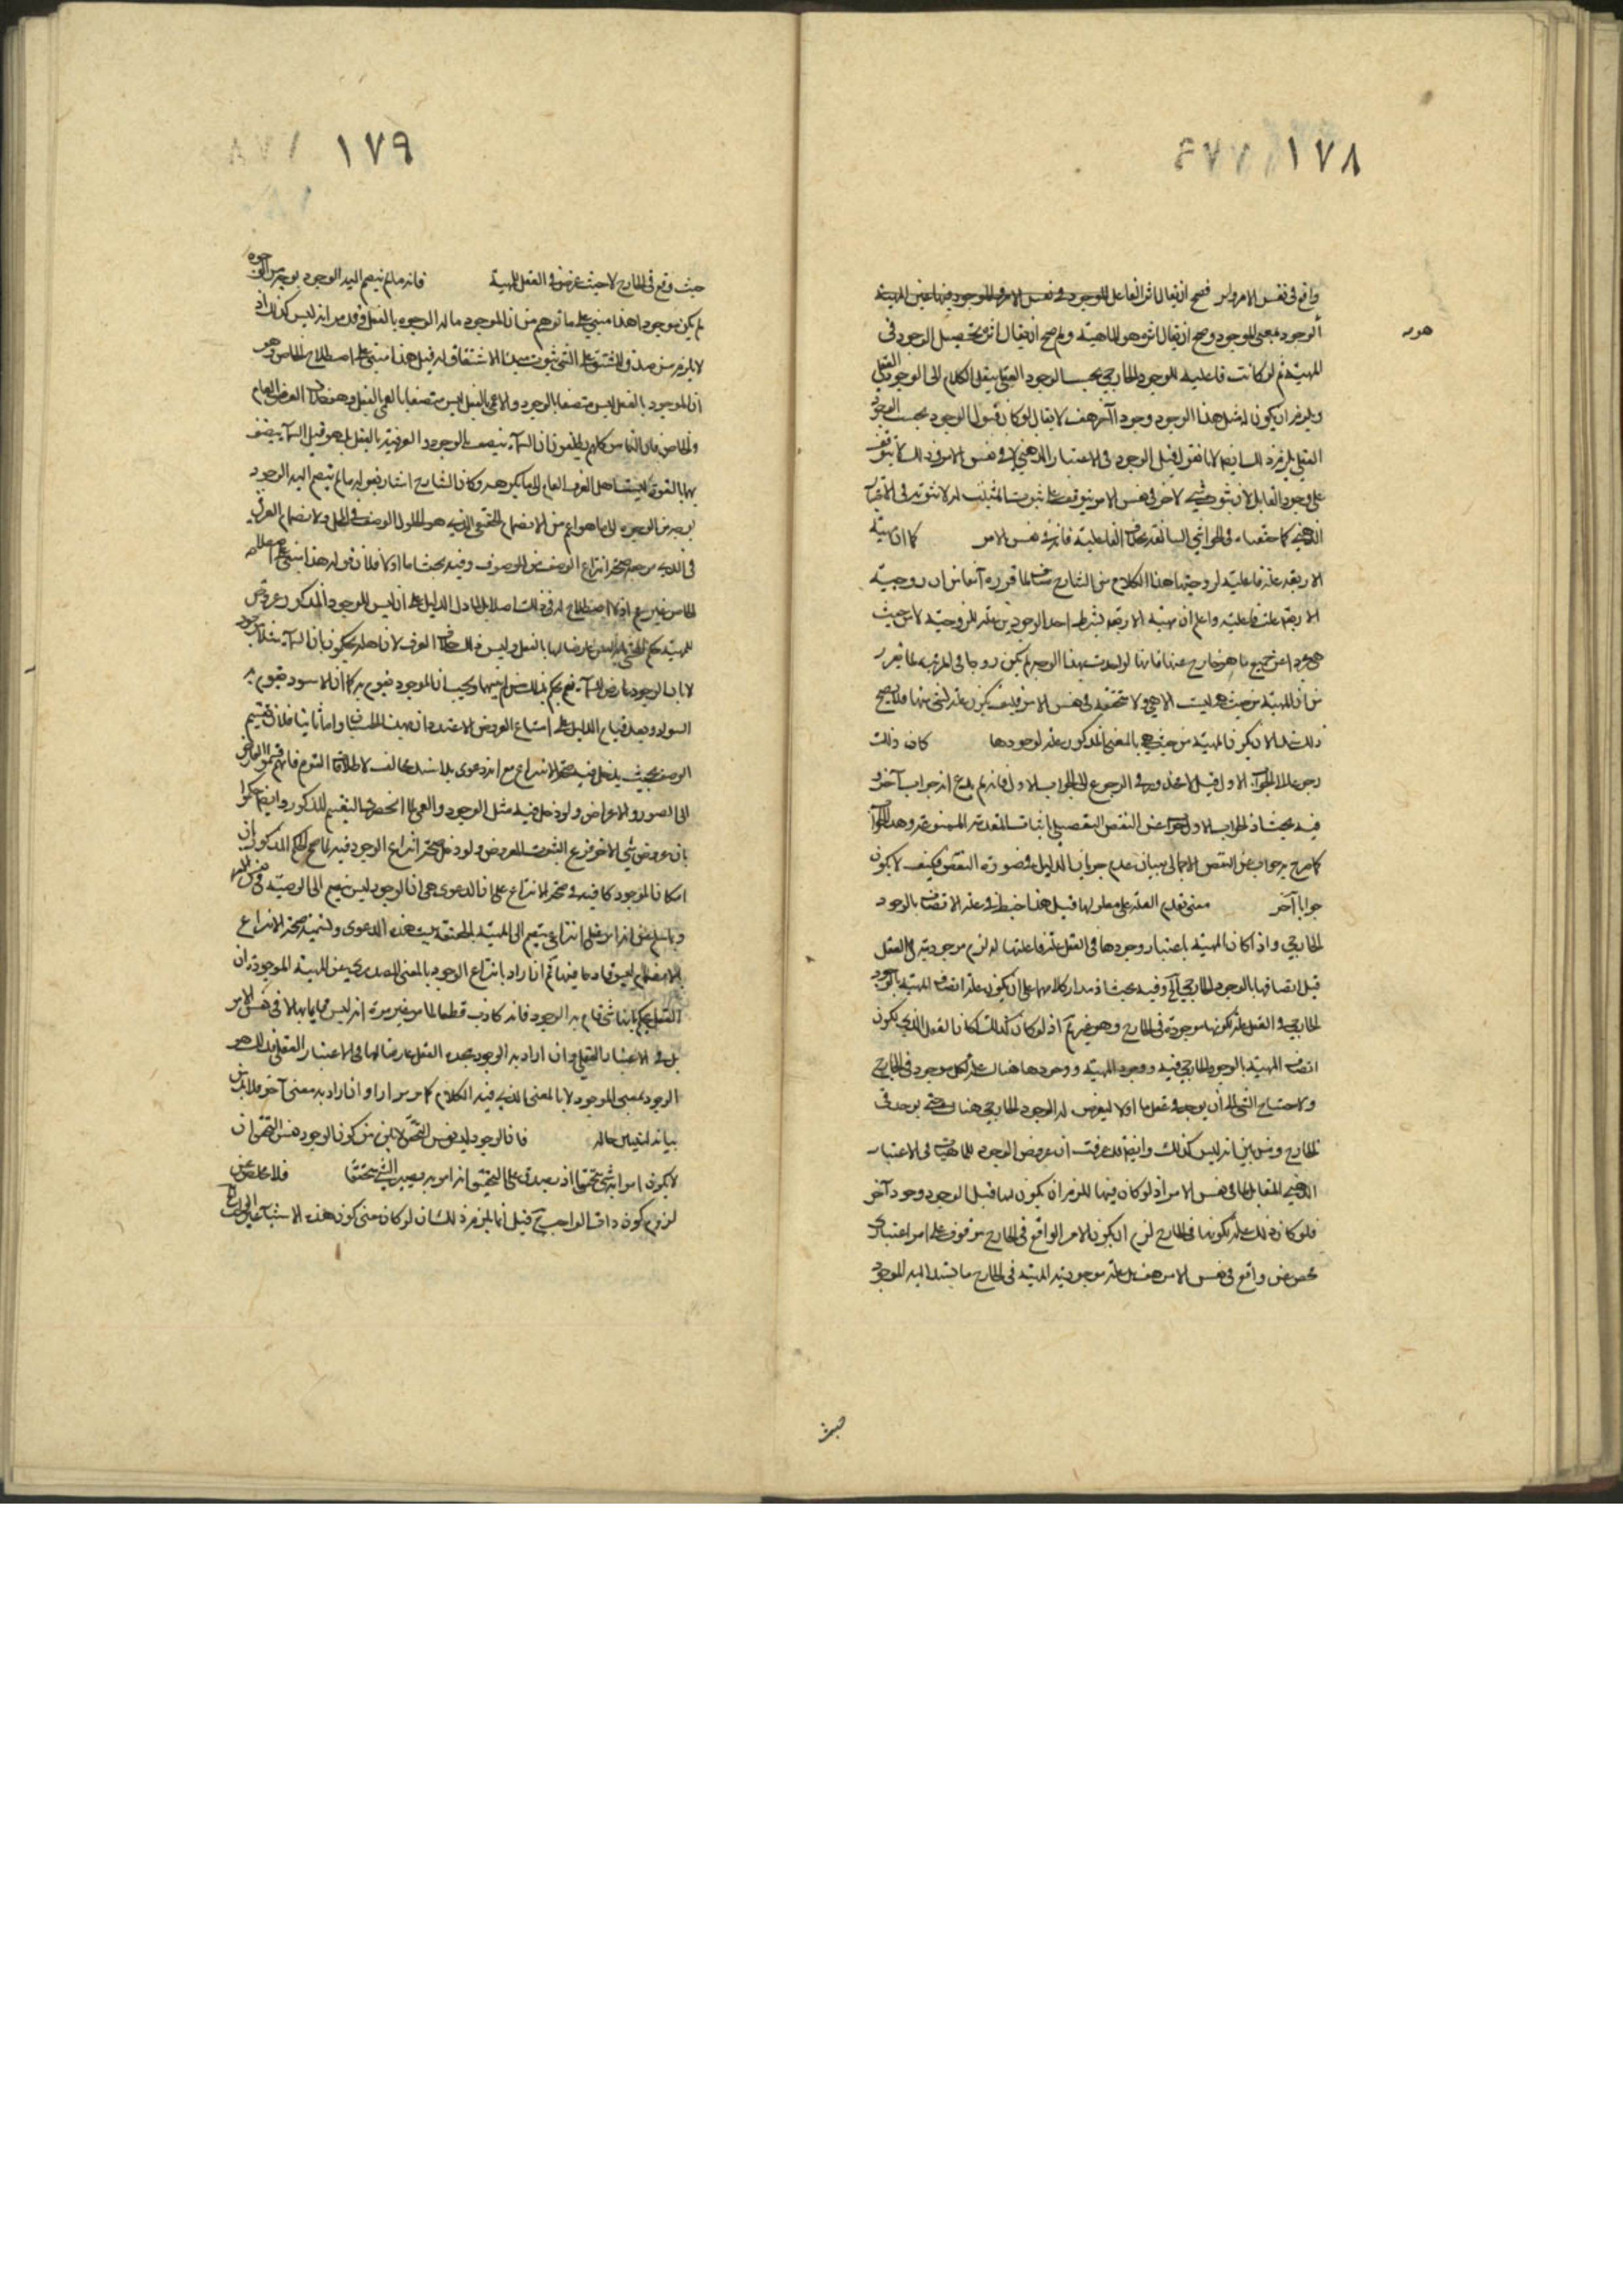 ١٧٨
واقع في نفس الامر وليس فصح ان يقال اثر الفاعل الموجود في نفس الامر والموجود فيها عين المهية
هو
الوجود بمعنى الموجود وصح ان يقال اثره هو الماهية ولم يصح ان يقال اثره تحصيل الوجود في
المهية ثم لو كانت فاعلية للوجود الخارجي بحسب الوجود العقلي ينقل الكلام الى الوجود العقلي
ويلزم ان يكون له مثل هذا الوجود وجود آخر هف لا يقال لو كان قبول الوجود بحسب الوجود
العقلي يلزم ذلك ايضا لانا نقول قبل الوجود في الاعتبار الذهني لا في نفس الامر وذلك لا يتوقف
على وجود القابل لان ثبوت شيء لاخر في نفس الامر يتوقف على ثبوت المثبت له لا ثبوته في الاعتبار
الذهني كما حققناه في الحواشي السابقة بخلاف الفاعلية فانه في نفس الامر كما ان مهية
الاربعة علة فاعلية لزوجيتها هذا الكلام من الشارح مناف لما قرره آنفا من ان زوجية
الاربعة علة فاعلية واعلم ان مهية الاربعة بشرط احد الوجودين علة للزوجية لا من حيث
هي مجردا عن جميع ما هو خارج عنها فانها لو اخذت بهذا الوجه لم يكن زوجا في المرتبة لما تقرر
من ان المهية من حيث هي ليست الا هي ولا متحققة في نفس الامر فكيف يكون علة لشيء منها فلا يصح
ذلك لان يكون المهية من حيث هي بالمعنى المذكور علة لوجودها كان ذلك
رجوعا الى الجواب الاول قيل لا محذور في الرجوع الى الجواب الاول فانه لم يدع انه جواب آخر و
فيه بحث اذ الجواب الاول جواب عن النقض التفصيلي باثبات المقدمة الممنوعة وهذا الجواب
كما صرح به جواب عن النقض الاجمالي ببيان عدم جريان الدليل في صورة النقض فكيف لا يكون
جوابا آخر معنى تقدم العلة على معلولها قيل هذا خبط في علة الاتصاف بالوجود
الخارجي واذا كان المهية باعتبار وجودها في العقل علة فاعلتها له لزم موجوديته في العقل
قبل اتصافها بالوجود الخارجي آه وفيه بحث اذ مدار كلامه على ان يكون علة اتصاف المهية بالوجود
الخارجي في العقل علة لكونها موجودة في الخارج وهو غير تم اذ لو كان كذلك لكان العقل الذي يكون
اتصاف المهية بالوجود الخارجي فيه ووجود المهية ووجودها هناك علة لكل موجود في الخارج
ولاحتياج الشيء الى ان يوجد في عقل ما اولا ليعرض له الوجود الخارجي هناك حتى يوجد في
الخارج ومن البين انه ليس كذلك وايضا قد عرفت ان عروض الوجود للماهيات في الاعتبار
الذهني المقابل لما في نفس الامر اذ لو كان فيها للزم ان يكون لها قبل الوجود وجود آخر
فلو كان ذلك علة لكونها في الخارج لزم ان يكون الامر الواقع في الخارج موقوف على امر اعتباري
محض غير واقع في نفس الامر هف بل علة موجودية المهية في الخارج ما يستند اليه الموجود
حيث
١٧٩
حيث وقع في الخارج لا حيث عرض في العقل للمهية فانه ما لم ينضم اليه الوجود بوجه من الوجوه
لم يكن موجودا هذا مبني على ما توهم من ان الموجود ما له الوجود بالفعل وقد مر انه ليس كذلك اذ
لا يلزم من صدق المشتق على الشيء ثبوت مبدأ الاشتقاق له قيل هذا مبني على اصطلاح الخاص وهو
ان الموجود بالفعل ليس متصفا بالوجود والاعمى بالفعل ليس متصفا بالعمى بالفعل وهو خلاف العرف العام
والخاص فان الناس كلهم يطلقون ان السماء يتصف بالوجود والفوقية بالفعل بل هو قيل السماء يتصف
بها بالقوة يستجهل العرف العام الحاكم هو وكان الشارح اشار بقوله ما لم ينضم اليه الوجود
بوجه من الوجوه الى ما هو اعم من الانضمام الحقيقي الذي هو الحلول الوصف في المحل والانضمام العرفي
في الذي مرجعه صحة انتزاع الوصف من الموصوف وفيه بحث اما اولا فلان قوله هذا مبني على اصطلاح
الخاص غير تم اذ لا اصطلاح له في ذلك اصلا بل لما دل الدليل على انه ليس للوجود المذكور عروض
للمهية حكم العقل بانه ليس عارضا لها بالفعل وليس ذلك خلاف العرف لان اهله يحكمون بان السماء مثلا موجود
لا بان الوجود عارض للسماء نعم يحكم بذلك من لم يتنبه ويحسب ان الموجود مقوم به كما ان الاسود مقوم به
السواد وبعد قيام الدليل على امتناع العروض لا اعتداد بهذا الحسبان واما ثانيا فلان تقسيم
الوصف بحيث يدخل فيه صحة الانتزاع مع انه دعوى بلا شاهد مخالف لاطلاقات القوم فانهم قسموا العارض
الى الصور والاعراض ولو دخل فيه مثل الوجود والعمى لما انحصر بهذا التقسيم المذكور وايضا حكموا
بان عروض شيء لاخر فرع الثبوت المعروض ولو دخل صحة انتزاع الوجود فيه لما صح الحكم المذكور بان
امكان الموجود كاف في صحة الانتزاع على ان الدعوى هي ان الوجود ليس ينضم الى المهية في نفس الامر
وما سلم من انه امر عقلي انتزاعي ينضم الى المهية بالحقيقة يثبت هذه الدعوى وتسمية صحة الانتزاع
بالانضمام ليس قادحا فيها ثم ان اراد بانتزاع الوجود بالمعنى المصدري عن المهية الموجودة ان
العقل يحكم بانها شيء قام به الوجود فانه كاذب قطعا لما مر غير مرة انه ليس قائما بها لا في نفس الامر
بل في الاعتبار العقلي وان اراد به الوجود يجده العقل عارضا لها في الاعتبار العقلي فذلك هو
الوجود بمعنى الموجود لا بالمعنى الذي فيه الكلام كما مر مرارا وان اراد به معنى آخر فلا بد من
بيانه لنتبين حاله فان الوجود ليس نفس التحقق لا يلزم من كون الوجود نفس التحقق ان
لا يكون امرا به شيء تحقق اذ يصدق على التحقق انه امر به يصير الشيء متحققا فلا مخلص عن
لزوم كون ذات الواجب آه قيل انما يلزم ذلك ان لو كان معنى كون هذه الاشياء عين الواجب